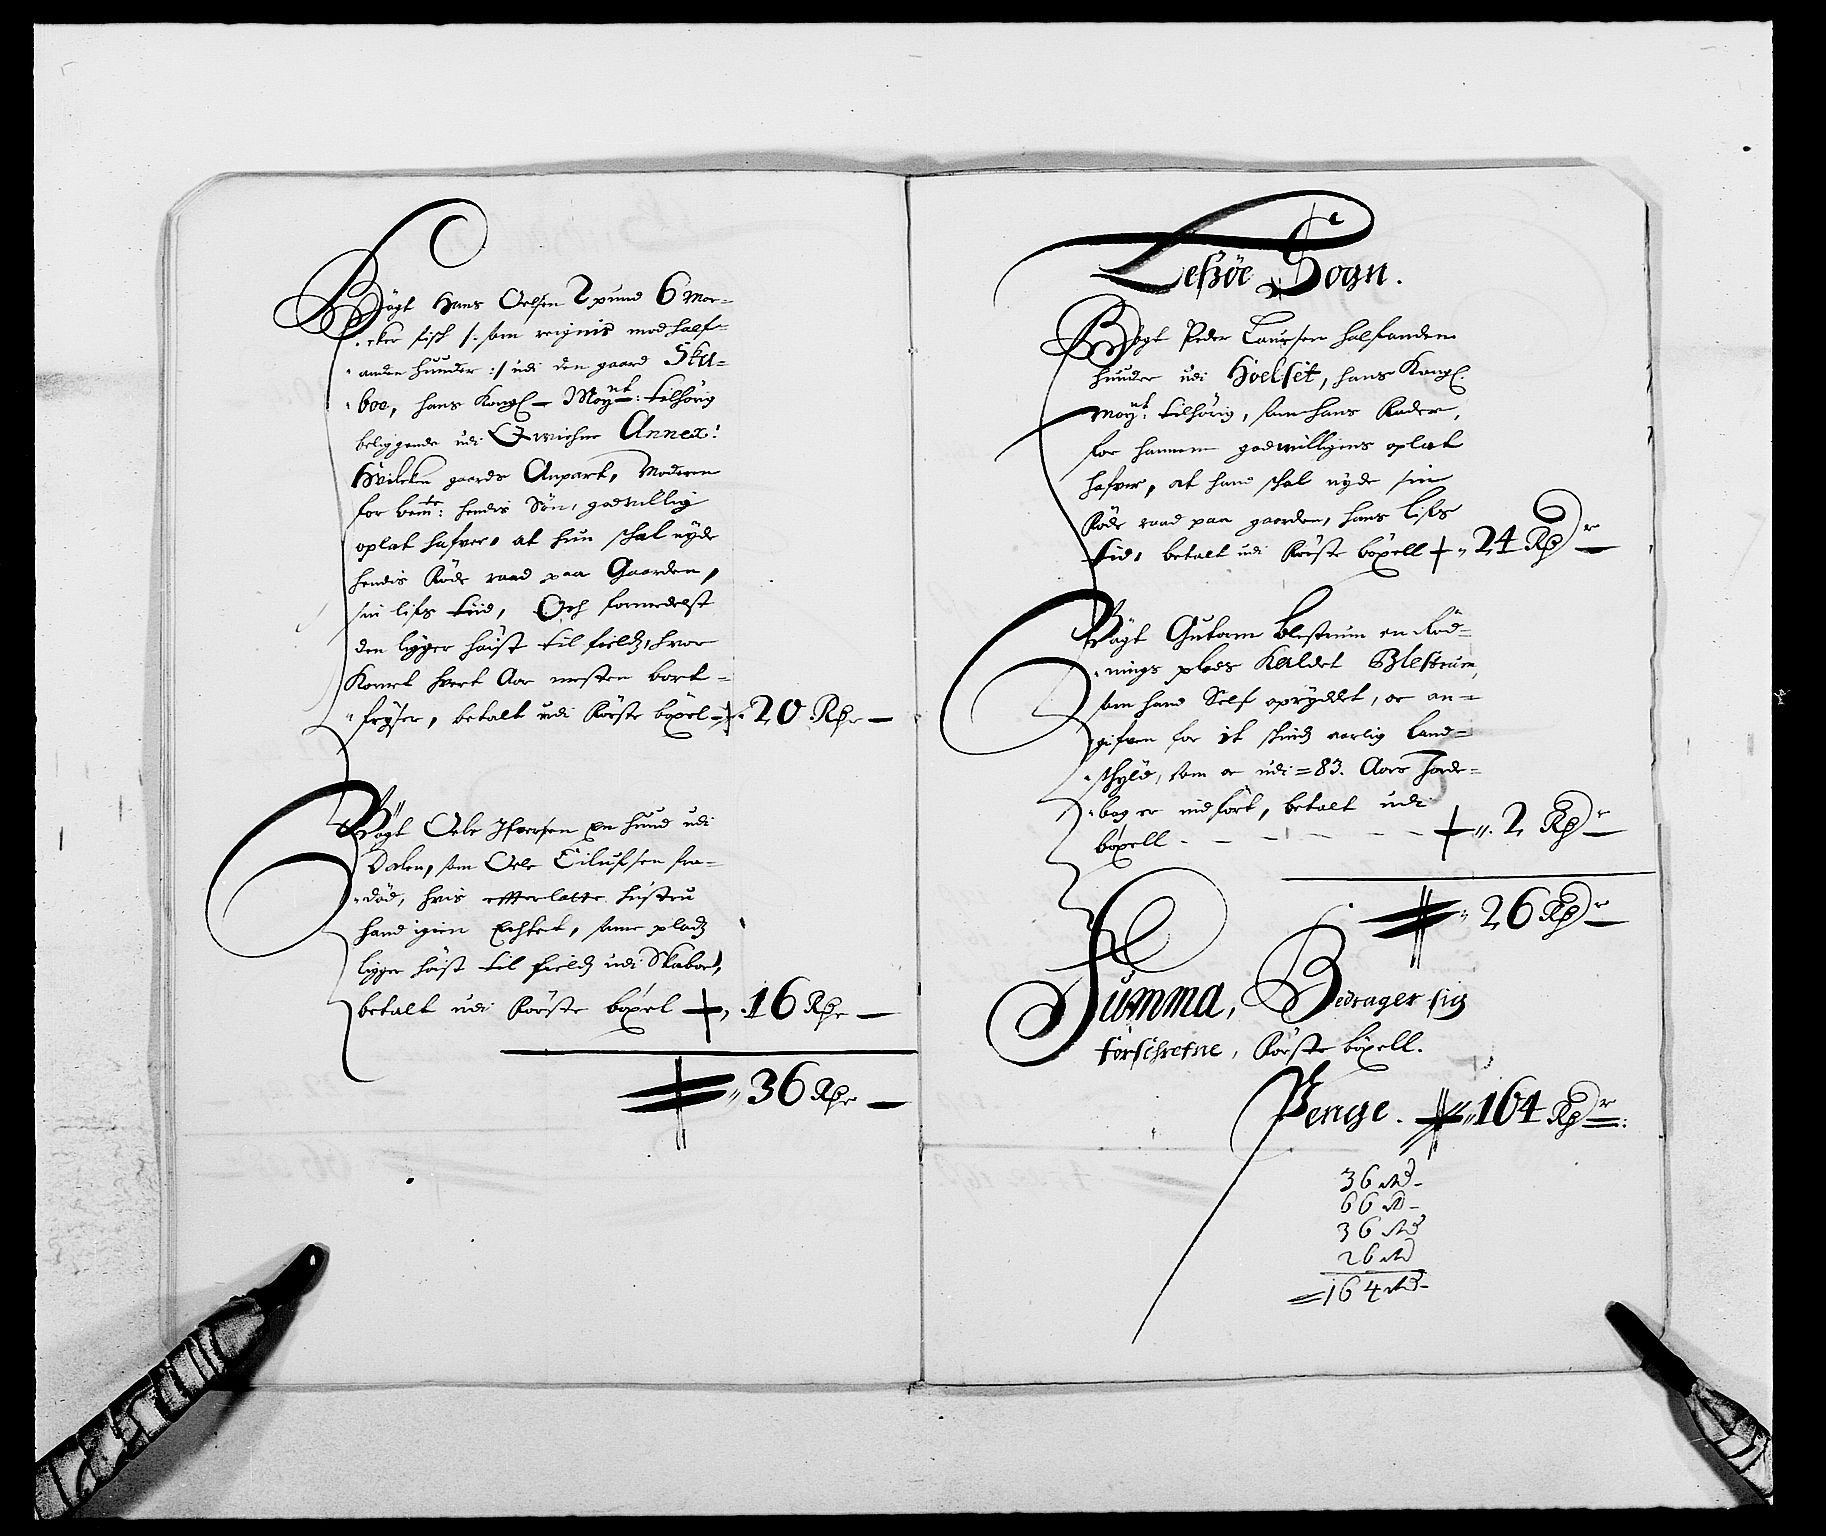 Bögt Hans Oelsen 2 pund 6 Mar-
cker fisk /: som reignis mod half-
anden hunder :/ udi den gaard Sku-
boe, hans Kongl- Maytt: tilhörig
beliggende udi Qwichne Annex:
Hvilcken gaards Anpart, Moderen
for bemte: hendis Sön, godvillig
oplat hafver, at hun schal nyde
hendis Röde raad paa Gaarden,
sin lifs tiid, Och formedelst
den ligger höist til fields, hvor
Kornet hvert Aar mesten bort-
fryser, betalt udi Förste böxel - 20 Rdr -
Bögt Oele Ifversen en hund udi
Dalen, som Oele Eilufsen fra-
död, hvis efterlatte Hustru
hand igien Echtet, samme plads
ligger höist til fields udi Skaboe,
betalt udi Förste böxel - 16 Rdr -
36 Rdr -
Lessöe Sogn.
Bögt Peder Laursen halfanden
hunder udi Hoelset, hans Kongl.
Maytt: tilhörig, som hans Fader,
for hannem godwilligens oplat
hafver, at hand schal nyde sin
Föde raad paa gaarden, hans lifs
tid, betalt udi Förste böxell - 24 Rdr -
Bögt Gutorm Blestrum en Röd-
nings plads Kaldet Blestrum,
som hand Self opryddet, er an-
gifven for it skinds aarlig Land-
schyld, som er udi = 83. Aars Jorde-
bog er indfört, betalt udi
böxell - - - - - 2 Rdr -
26 Rdr -
Summa, Bedrager sig
forschrefne, Förste böxell.
Penge. 164 Rdr
36 Rd -
66 Rd -
36 Rd
26 Rd
= 164 Rd -